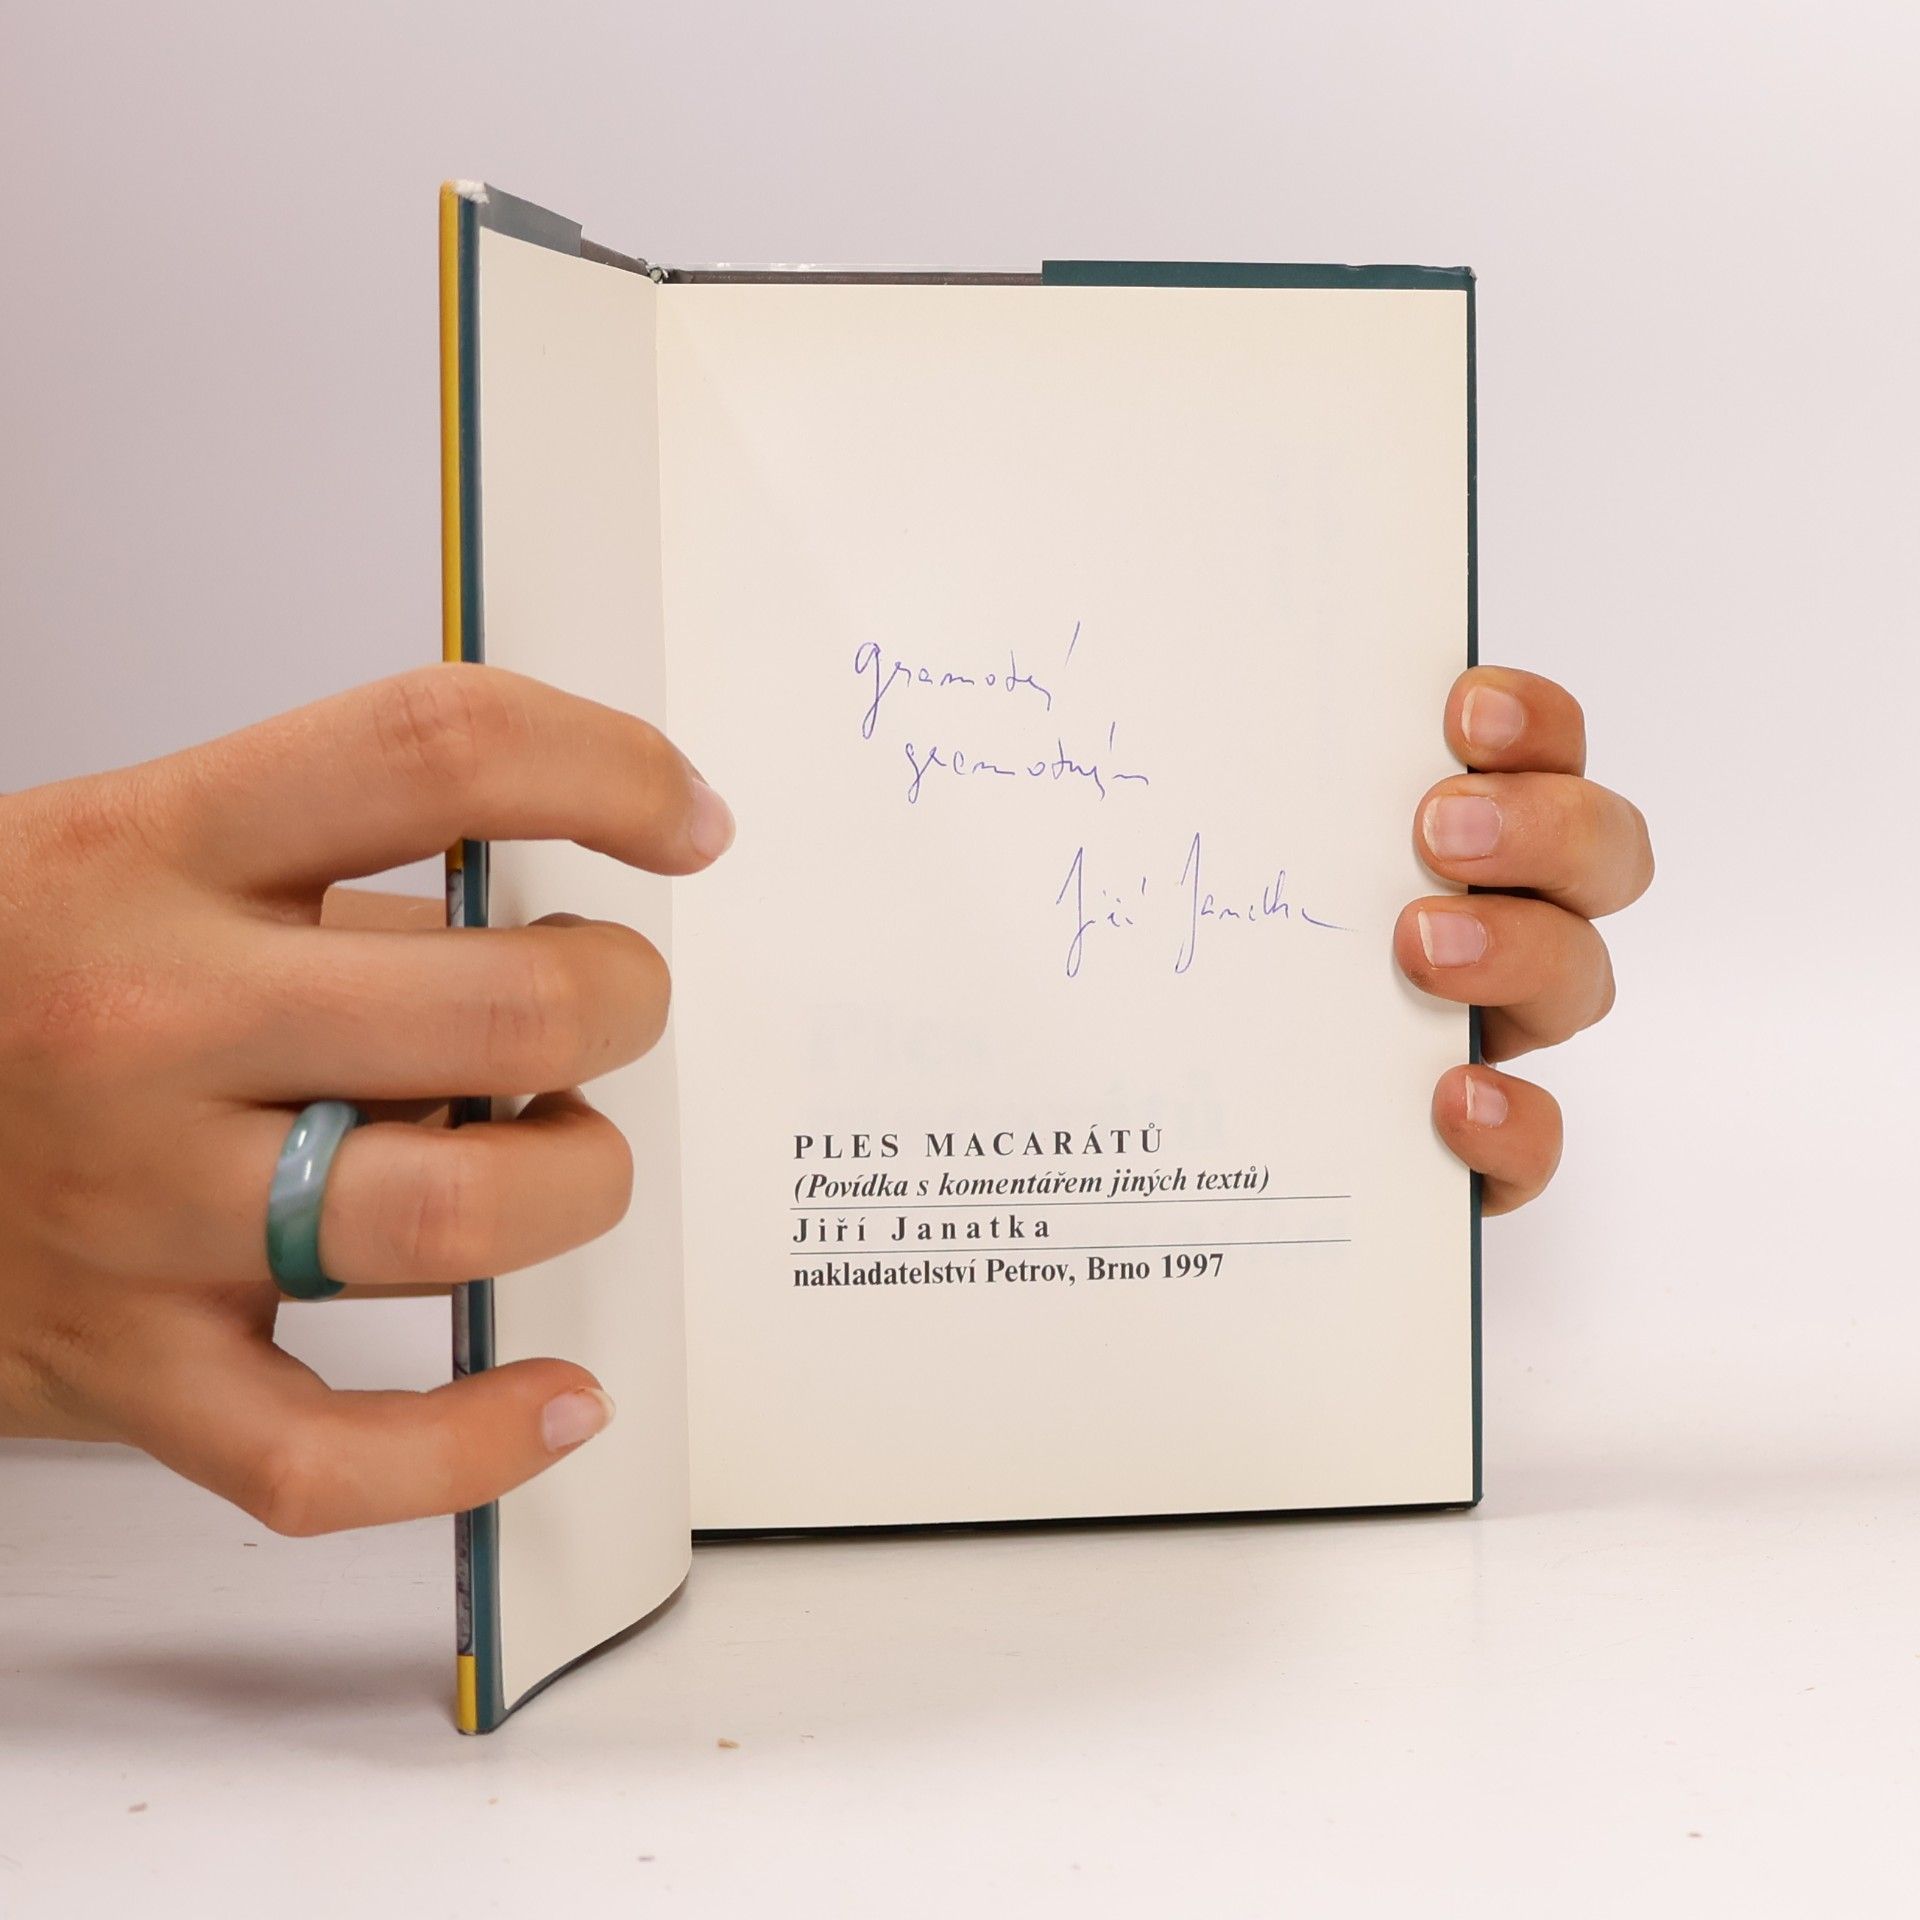 gramotný
gramotným
Jiří Janatka
PLES MACARÁTŮ
(Povídka s komentářem jiných textů)
Jiří Janatka
nakladatelství Petrov, Brno 1997